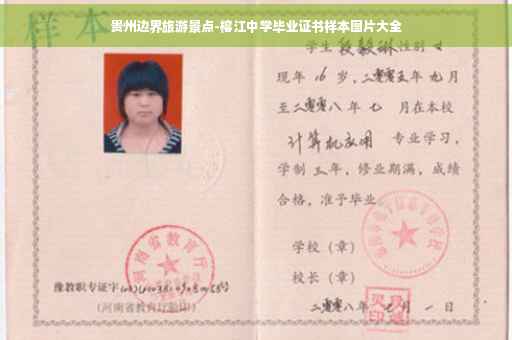 贵州边界旅游景点-榕江中学毕业证书样本图片大全
样本
学生段毅琳性别女
现年16岁，二零零五年九月
至二零零八年七月在本校
计算机应用专业学习，
学制三年，修业期满，成绩
合格，准予毕业
学校（章）
校长（章）
二零零八年 月一日
河南省教育厅
豫教职专证字
（河南省教育厅验印）